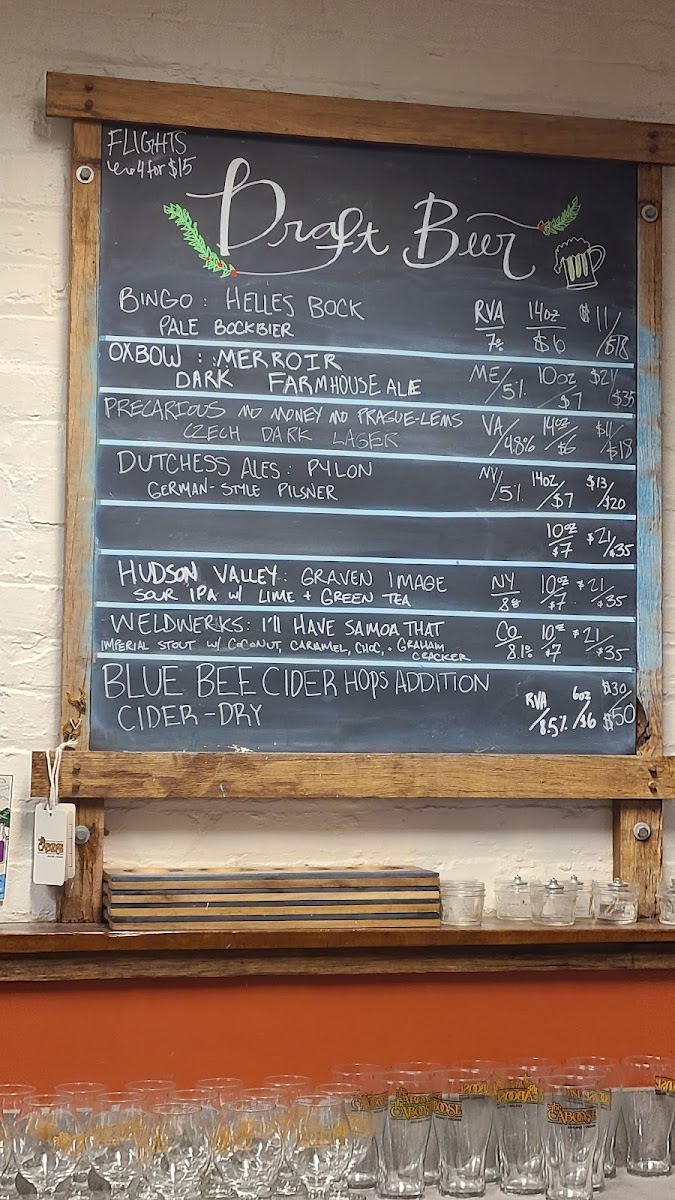 FLIGHTS
4 for $15
Draft Beer
BINGO: HELLES BOCK RVA 14oz $11/
PALE BOCKBIER 7% $6 /$18
OXBOW :: MERROIR ME/5% 10oz $21/
DARK FARMHOUSE ALE /$7 /$35
PRECARIOUS NO MONEY NO PRAGUE-LEMS VA/ 14oz $11/
CZECH DARK LAGER /4.8% /$6 /$18
DUTCHESS ALES: PYLON NY/5% 14oz/ $13/
GERMAN-STYLE PILSNER /$7 /$20
10oz/$7 $21/$35
HUDSON VALLEY: GRAVEN IMAGE NY 10oz $21/
SOUR IPA W/ LIME + GREEN TEA 8% /$7 /$35
WELDWERKS: I'll HAVE SAMOA THAT CO 10oz $21/
IMPERIAL STOUT W/ COCONUT, CARAMEL, CHOC, + GRAHAM 8.1% /$7 /$35
CRACKER
BLUE BEE CIDER HOPS ADDITION RVA 6oz $30/
CIDER-DRY /8.5% /$6 $50
CABOOSE
CABOOSE